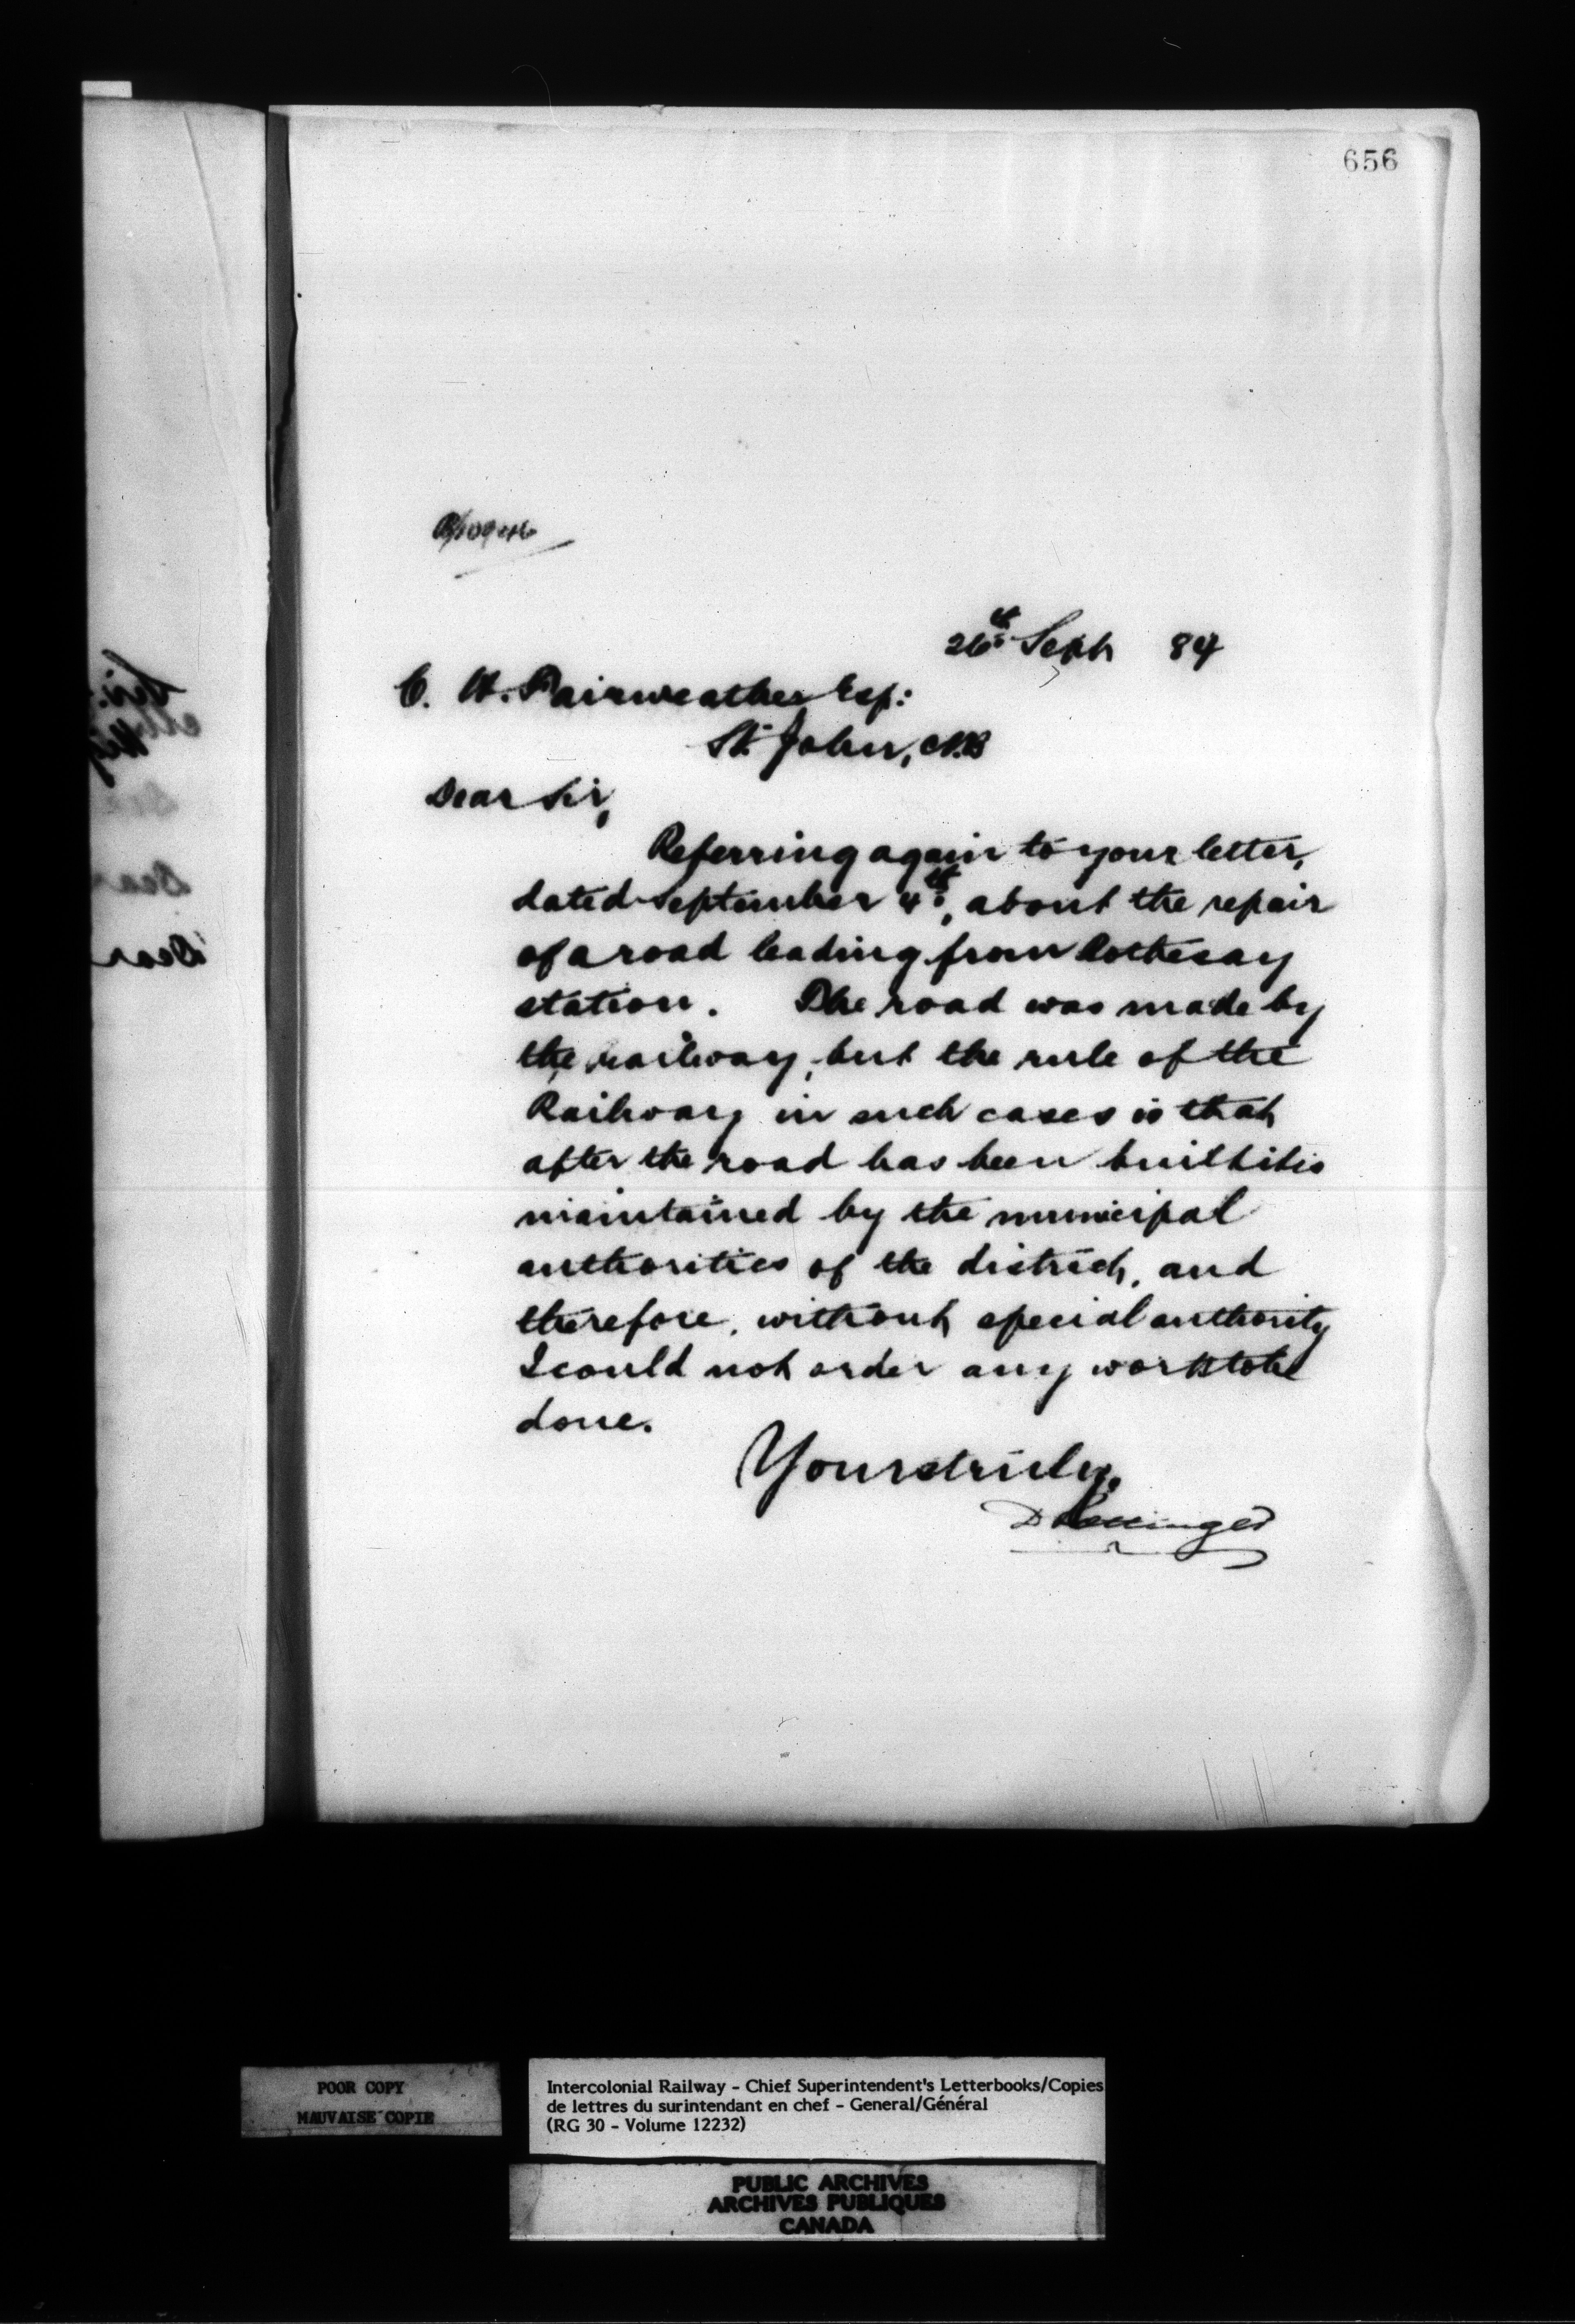 656
26th Sept 84
C. H. Fairweather Esq:
St. John, N.B
Dear Sir,
Referring again to your letter,
dated September 4th, about the repair
of a road leading from Rothesay
station. The road was made by
the railway, but the rule of the
Railway in such cases is that
after the road has been built it is
maintained by the municipal
authorities of the district, and
therefore, without special authority
I could not order any work to be
done.
Yours truly,
D Pottinger
POOR COPY
MAUVAISE COPIE
Intercolonial Railway - Chief Superintendent's Letterbooks/Copies
de lettres du surintendant en chef - General/Général
(RG 30 - Volume 12232)
PUBLIC ARCHIVES
ARCHIVES PUBLIQUES
CANADA